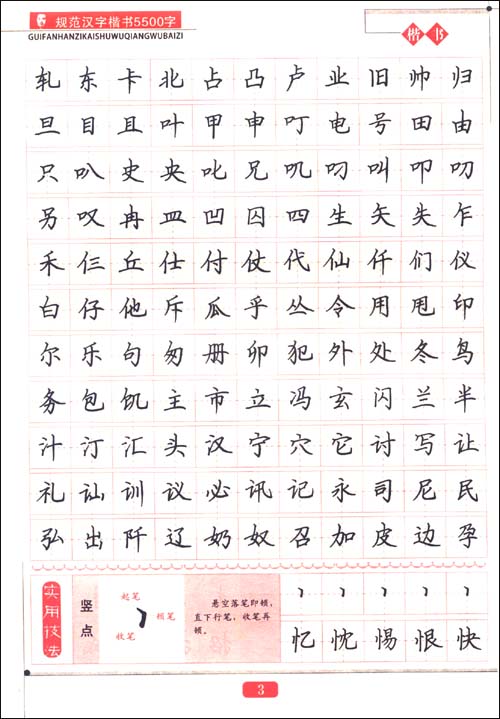 规范汉字楷书5500字
GUIFANHANZIKAISHUWUQIANGWUBAIZI
楷书
轧东卡北占凸卢业旧帅归
旦目且叶甲申叮电号田由
只叭史央叱兄叽叼叫叩叨
另叹冉皿凹囚四生矢失乍
禾仨丘仕付仗代仙仟们仪
白仔他斥瓜乎丛令用甩印
尔乐句匆册卯犯外处冬鸟
务包饥主市立冯玄闪兰半
汁汀汇头汉宁穴它讨写让
礼讪训议必讯记永司尼民
弘出阡辽奶奴召加皮边孕
实用技法
竖点
起笔
顿笔
收笔
悬空落笔即顿，
直下行笔，收笔再
顿。
忆忱惕恨快
3